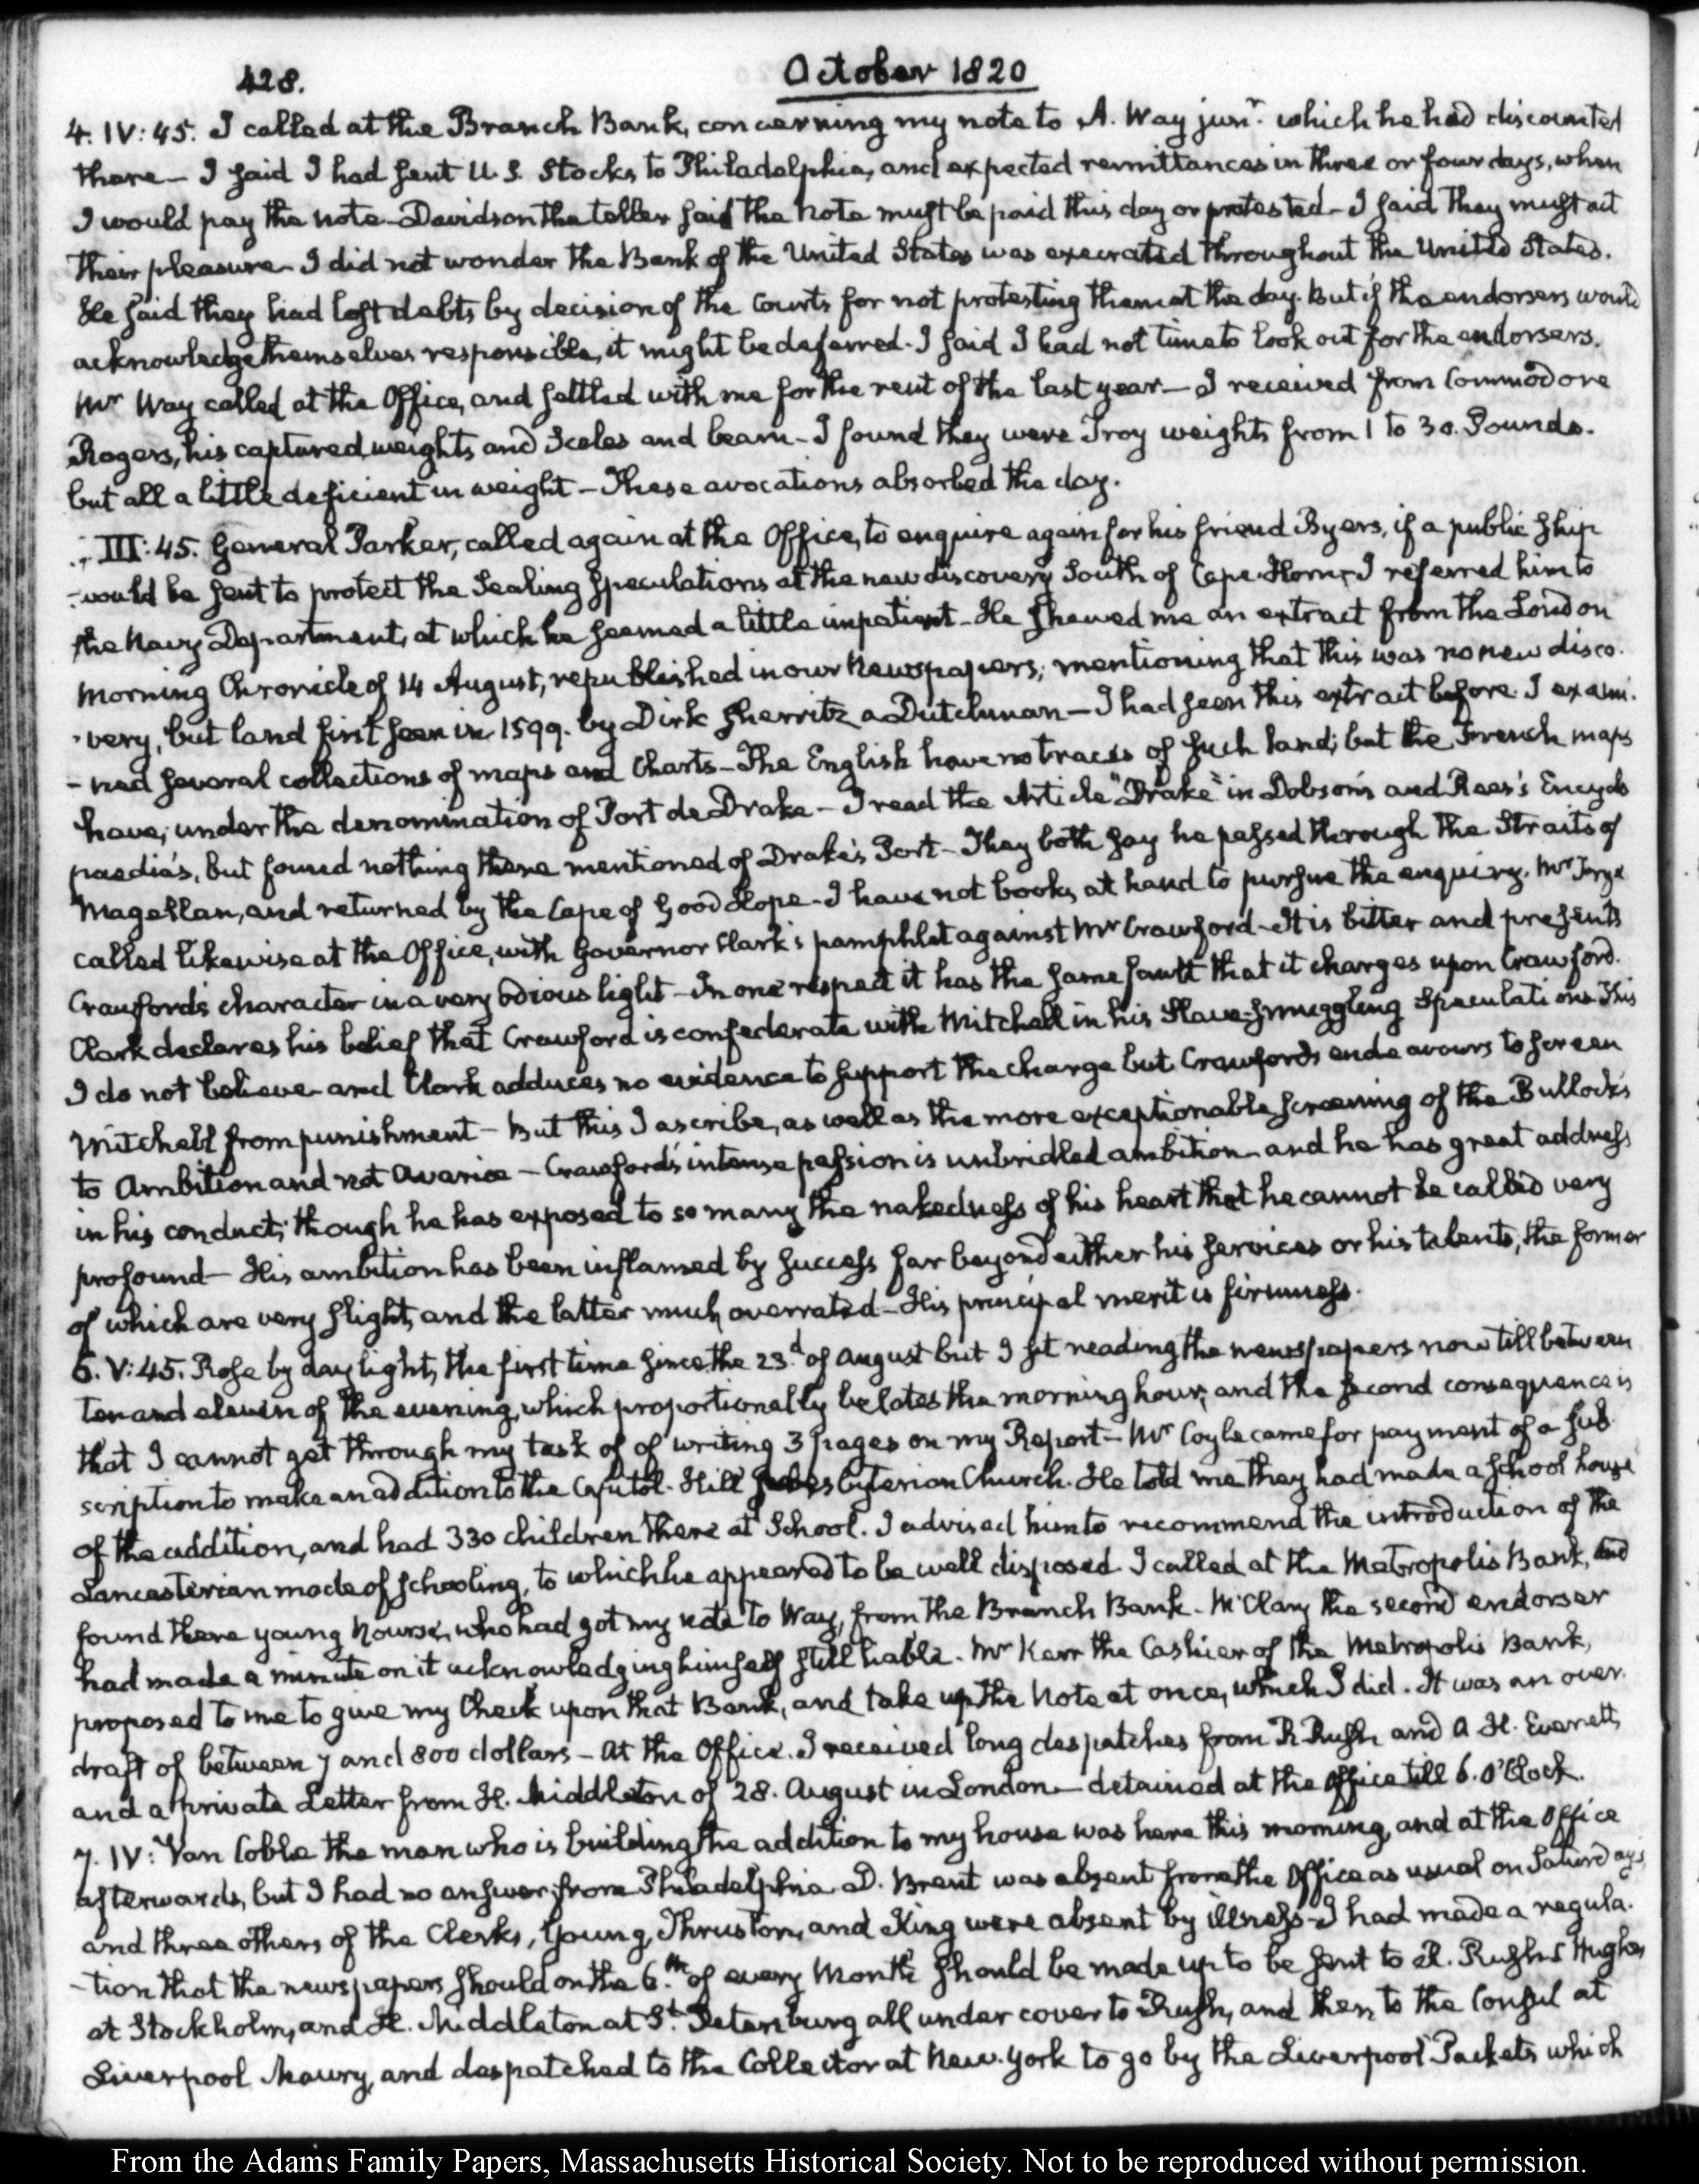 428.
October 1820
4. IV: 45. I called at the Branch Bank, concerning my note to A. Way junr. which he had discounted
there — I said I had sent U.S. Stocks to Philadelphia, and expected remittances in three or four days, when
I would pay the note — Davidson the teller said the note must be paid this day or protested — I said they must act
their pleasure — I did not wonder the Bank of the United States was execrated throughout the United States.
He said they had lost debts by decision of the Courts for not protesting them at the day. But if the endorsers would
acknowledge themselves responsible, it might be deferred. I said I had not time to look out for the endorsers.
Mr Way called at the Office, and settled with me for the rent of the last year — I received from Commodore
Rogers, his captured weights and Scales and beam — I found they were Troy weights from 1 to 30. Pounds.
but all a little deficient in weight — These avocations absorbed the day.
III: 45. General Parker, called again at the Office, to enquire again for his friend Byers, if a public ship
would be sent to protect the Sealing Speculations at the new discovery South of Cape-Horn — I referred him to
the Navy Department, at which he seemed a little impatient — He shewed me an extract from the London
Morning Chronicle of 14 August, republished in our Newspapers, mentioning that this was no new disco-
-very, but land first seen in 1599. by Dirk Gherritz a Dutchman — I had seen this extract before. I exami-
-ned several collections of maps and Charts — The English have no traces of such land; but the French maps
have, under the denomination of Port de Drake — I read the Article "Drake" in Dobson's and Rees's Encyclo
paedia's, but found nothing there mentioned of Drake's Port — They both say he passed through the Straits of
Magellan, and returned by the Cape of Good Hope — I have not books at hand to pursue the enquiry. Mr
called likewise at the Office, with Governor Clark's pamphlet against Mr Crawford — It is bitter and presents
Crawford's character in a very odious light — In one respect it has the same fault that it charges upon Crawford.
Clark declares his belief that Crawford is confederate with Mitchell in his Slave-smuggling Speculations This
I do not believe and Clark adduces no evidence to support the charge but Crawford's endeavours to screen
Mitchell from punishment — But this I ascribe, as well as the more exceptionable screening of the Bullock's
to Ambition and not Avarice — Crawford's intense passion is unbridled ambition and he has great address
in his conduct; though he has exposed to so many the nakedness of his heart that he cannot be called very
profound — His ambition has been inflamed by success far beyond either his services or his talents, the former
of which are very slight, and the latter much overrated — His principal merit is firmness.
6. V: 45. Rose by day light, the first time since the 23d. of August but I sit reading the newspapers now till between
ten and eleven of the evening, which proportionally belates the morning hour, and the second consequence is
that I cannot get through my task of of writing 3 pages on my Report — Mr Coyle came for payment of a sub
scription to make an addition to the Capitol-Hill Presbyterian Church. He told me they had made a school house
of the addition, and had 330 children there at School. I advised him to recommend the introduction of the
Lancasterian mode of schooling, to which he appeared to be well disposed. I called at the Metropolis Bank, and
found there young Nourse, who had got my note to Way, from the Branch Bank. McClary the second endorser
had made a minute on it acknowledging himself still liable. Mr Kerr the Cashier of the Metropolis Bank,
proposed to me to give my Check upon that Bank, and take up the Note at once, which I did. It was an over
draft of between 7 and 800 dollars — At the Office. I received long despatches from R Rush and A H. Everett,
and a private Letter from H. Middleton of 28. August in London — detained at the Office till 6. O'Clock.
7. IV: Van Coble the man who is building the addition to my house was here this morning, and at the Office
afterwards, but I had no answer from Philadelphia. D. Brent was absent from the Office as usual on Saturdays
and three others of the Clerks, Young, Thruston, and King were absent by illness — I had made a regula-
-tion that the newspapers should on the 6.th of every Month should be made up to be sent to R. Rush Hughes
at Stockholm, and H. Middleton at St. Petersburg all under cover to Rush, and then to the Consul at
Liverpool Maury, and despatched to the Collector at New-York to go by the Liverpool Packets which
From the Adams Family Papers, Massachusetts Historical Society. Not to be reproduced without permission.